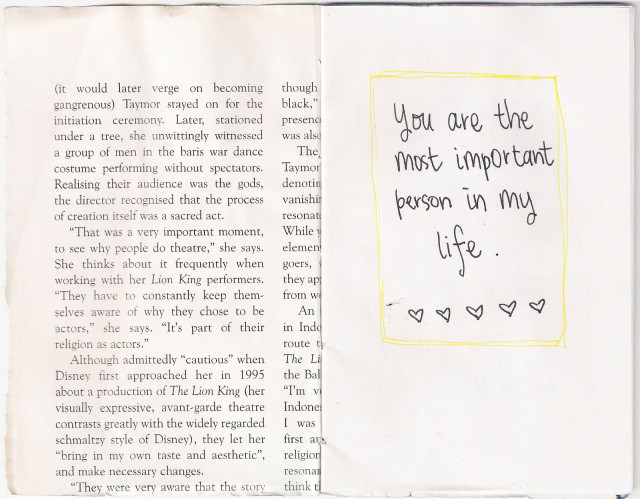 (it would later verge on becoming
gangrenous) Taymor stayed on for the
initiation ceremony. Later, stationed
under a tree, she unwittingly witnessed
a group of men in the baris war dance
costume performing without spectators.
Realising their audience was the gods,
the director recognised that the process
of creation itself was a sacred act.
“That was a very important moment,
to see why people do theatre,” she says.
She thinks about it frequently when
working with her Lion King performers.
“They have to constantly keep them-
selves aware of why they chose to be
actors,” she says. “It’s part of their
religion as actors.”
Although admittedly “cautious” when
Disney first approached her in 1995
about a production of The Lion King (her
visually expressive, avant-garde theatre
contrasts greatly with the widely regarded
schmaltzy style of Disney), they let her
“bring in my own taste and aesthetic”,
and make necessary changes.
“They were very aware that the story
though
black,”
presenc
was also
The
Taymor
denotin
vanishi
resonat
While y
elemen
goers,
they ap
from we
An
in Indo
route t
The Li
the Bal
“I’m v
Indone
I was
first ar
religion
resonar
think t
You are the
most important
person in my
life.